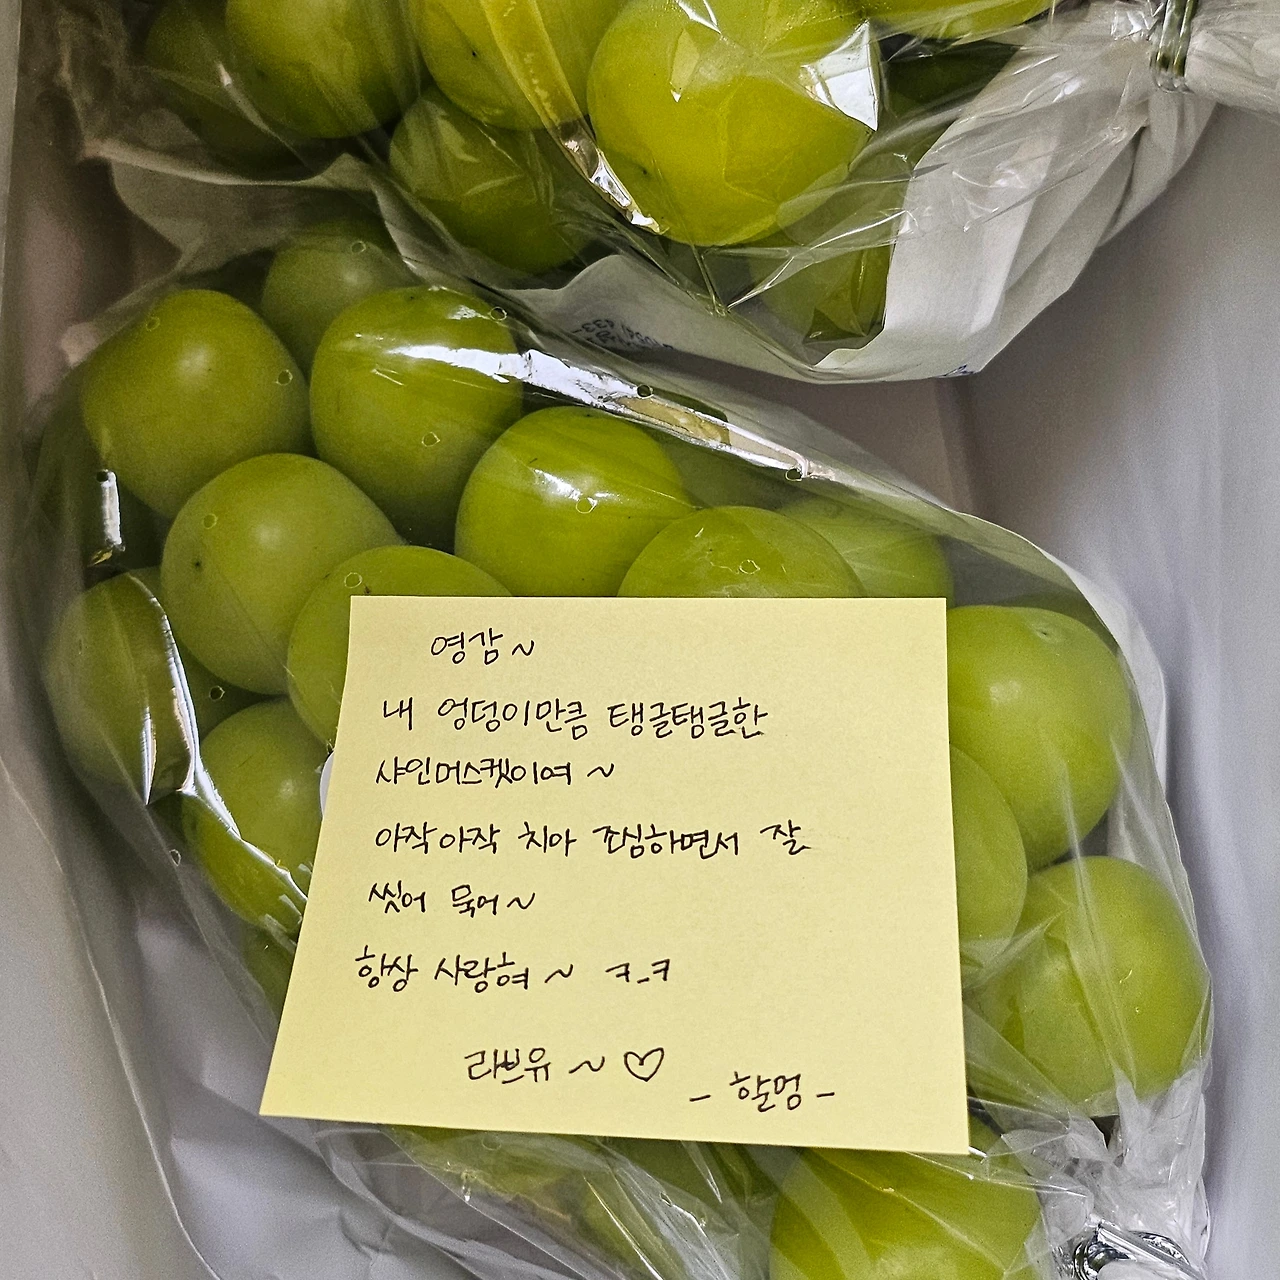 영감~
내 엉덩이만큼 탱글탱글한
샤인머스켓이여 ~
아작아작 치아 조심하면서 잘
씻어 묵어~
항상 사랑혀 ~ ㅋ_ㅋ
라쁘유 ~ ♡
- 할멍 -